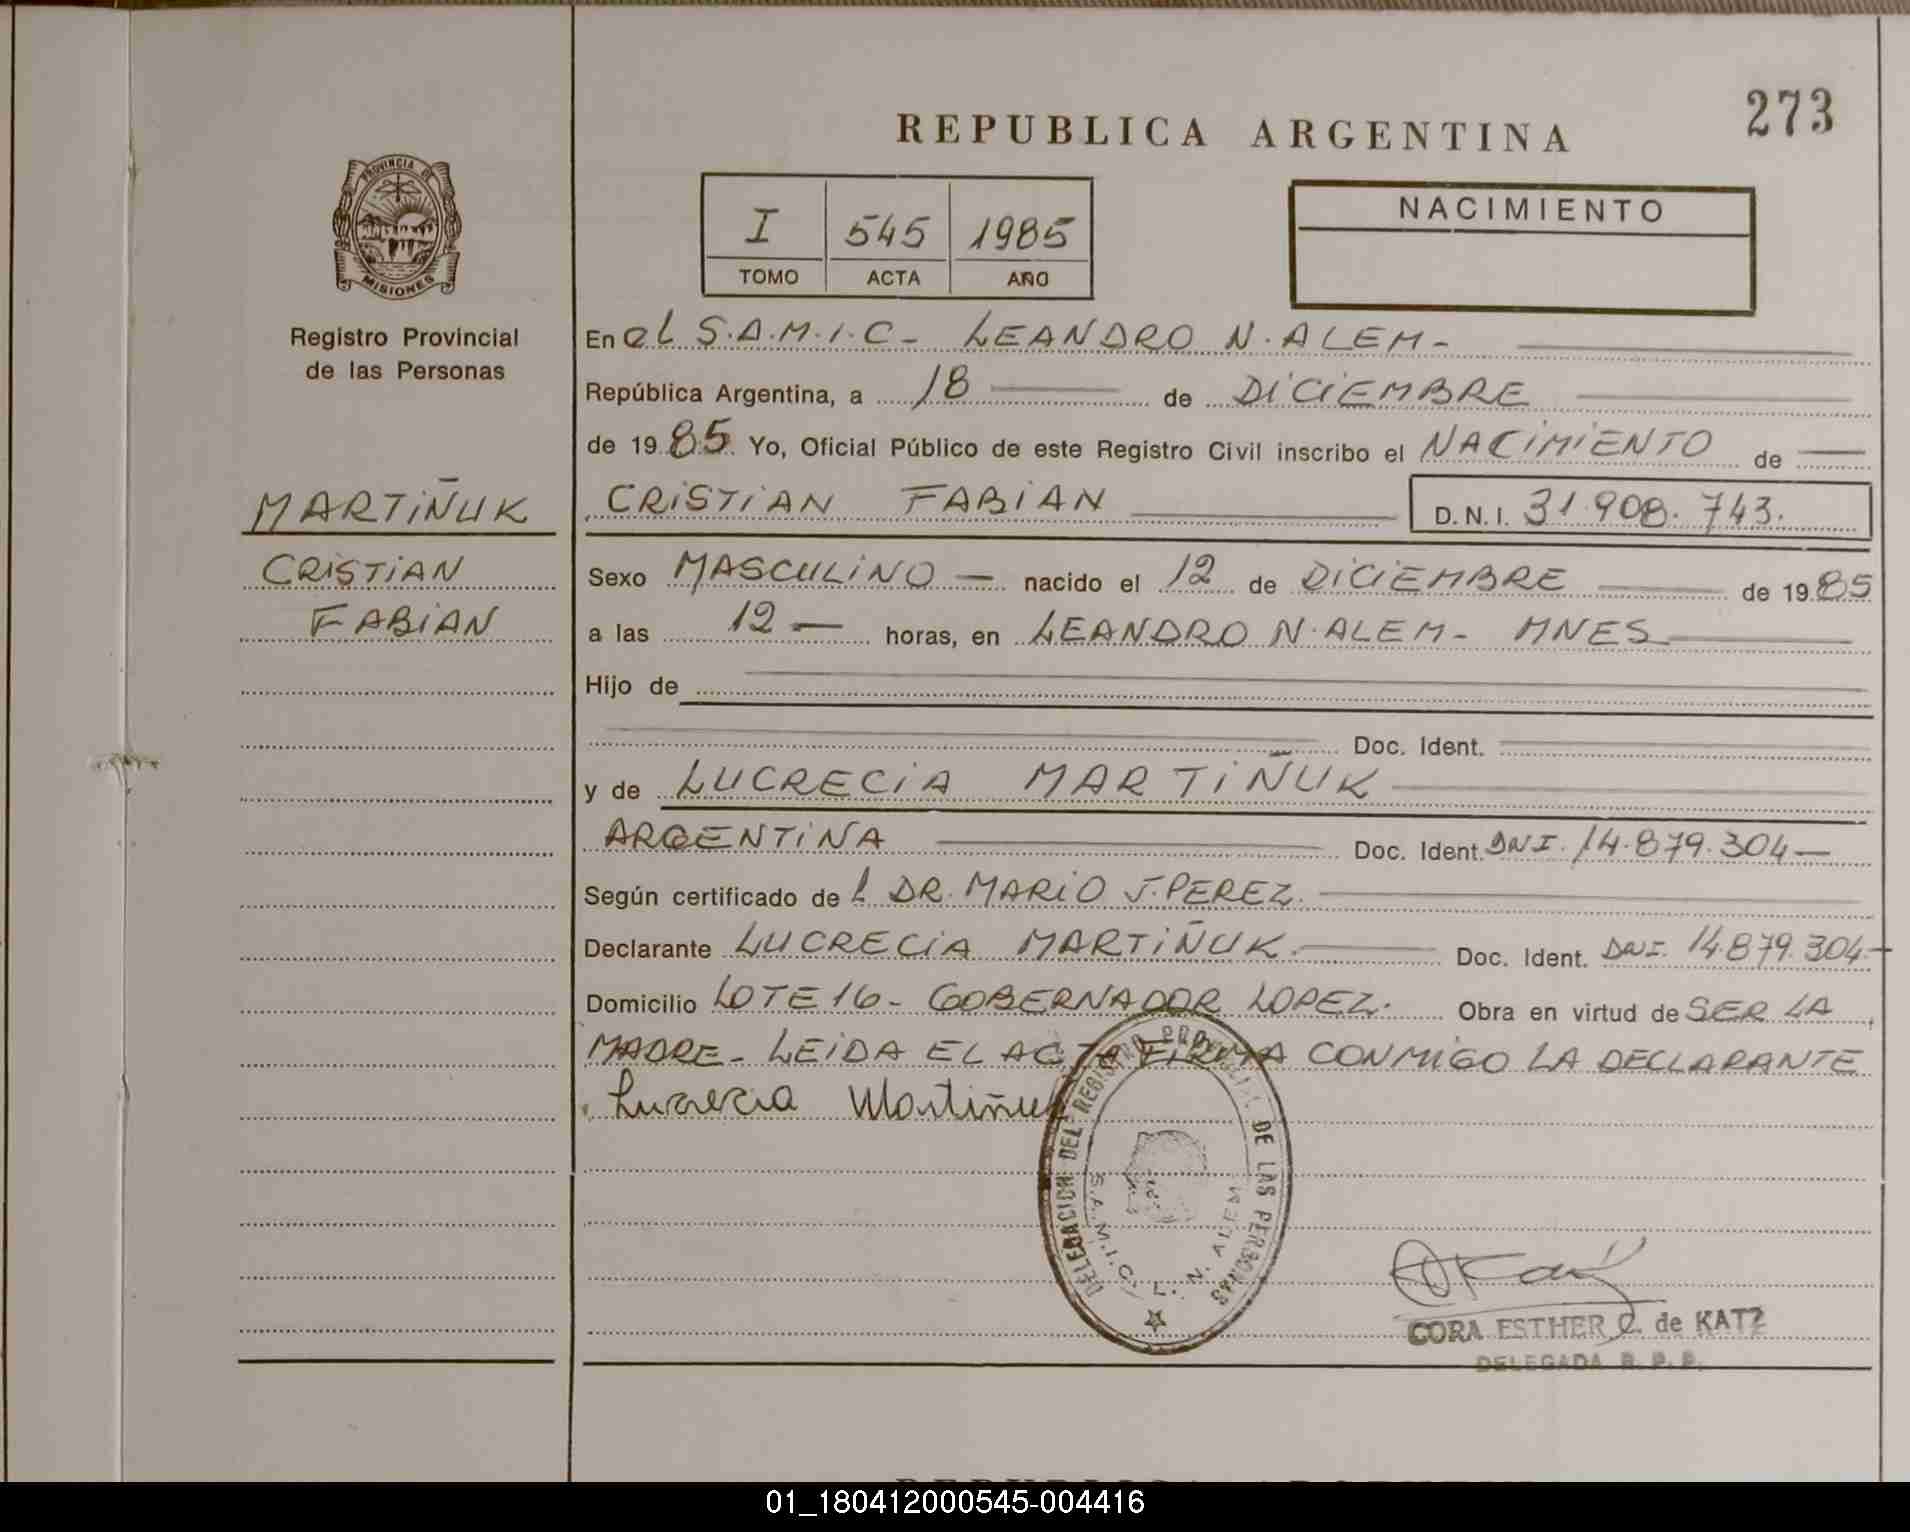 273
REPUBLICA ARGENTINA
PROVINCIA DE
MISIONES
Registro Provincial
de las Personas
I 545 1985
TOMO ACTA AÑO
NACIMIENTO
En el S.A.M.I.C - LEANDRO N. ALEM -
República Argentina, a 18 de DICIEMBRE
de 1985. Yo, Oficial Público de este Registro Civil inscribo el NACIMIENTO de
MARTIÑUK
CRISTIAN
FABIAN
CRISTIAN FABIAN D.N.I. 31.908.743.
Sexo MASCULINO — nacido el 12 de DICIEMBRE de 1985
a las 12 — horas, en LEANDRO N. ALEM - MNES
Hijo de
Doc. Ident.
y de LUCRECIA MARTIÑUK
ARGENTINA Doc. Ident. DNI. 14.879.304 —
Según certificado de l DR. MARIO J. PEREZ.
Declarante LUCRECIA MARTIÑUK. Doc. Ident. DNI. 14.879.304 -
Domicilio LOTE 16 - GOBERNADOR LOPEZ. Obra en virtud de SER LA
MADRE - LEIDA EL ACTA FIRMA CONMIGO LA DECLARANTE
Lucrecia Martiñuk
DELEGACION DEL REGISTRO PROVINCIAL DE LAS PERSONAS
S.A.M.I.C. L. N. ALEM
CORA ESTHER C. de KATZ
DELEGADA R. P. P.
REPUBLICA ARGENTINA
01_180412000545-004416